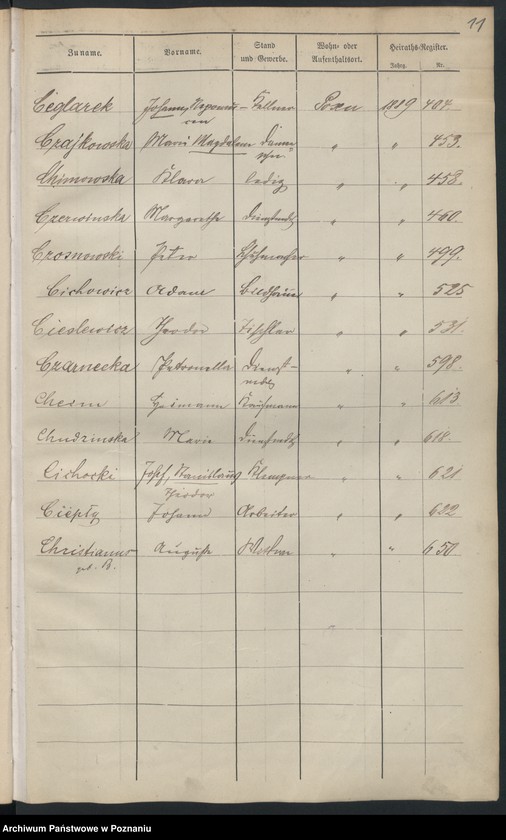 11
Zuname. Vorname. Stand und Gewerbe. Wohn- oder Aufenthaltsort. Heiraths-Register.
Jahrg. Nr.
Ceglarek Johann Nepomu- Kellner Posen 1889 404.
cen
Czajkowska Maria Magdalena " " 453.
Chimowska Klara ledig " " 458.
Czerwinska Margarethe Dienstmdch " " 460.
Crosnowski Peter Schuhmacher " " 499.
Cichowicz Adam Bildhauer " " 525
Cieslewicz Theodor Tischler " " 531.
Czarnecka Petronella Dienst- " " 598.
Hermann Kaufmann " " 613
Chudzinska Marie " " 618.
Cichocki Josef, Stanislaus Klempner " " 621
Theodor
Ciepły Johann Arbeiter " " 622
Christianus Auguste Wittwe " " 650.
geb. B.
Archiwum Państwowe w Poznaniu